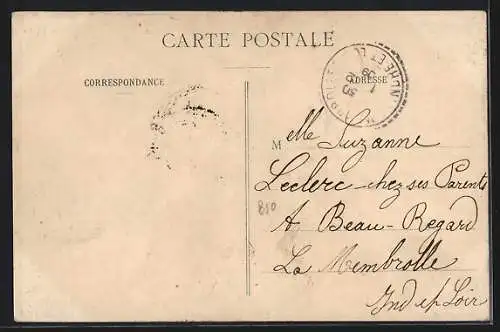 CARTE POSTALE
CORRESPONDANCE
ADRESSE
INDRE ET L
30
7
09
M elle Suzanne
Leclerc chez ses Parents
A Beau-Regard
La Membrolle
Ind et Loir
810